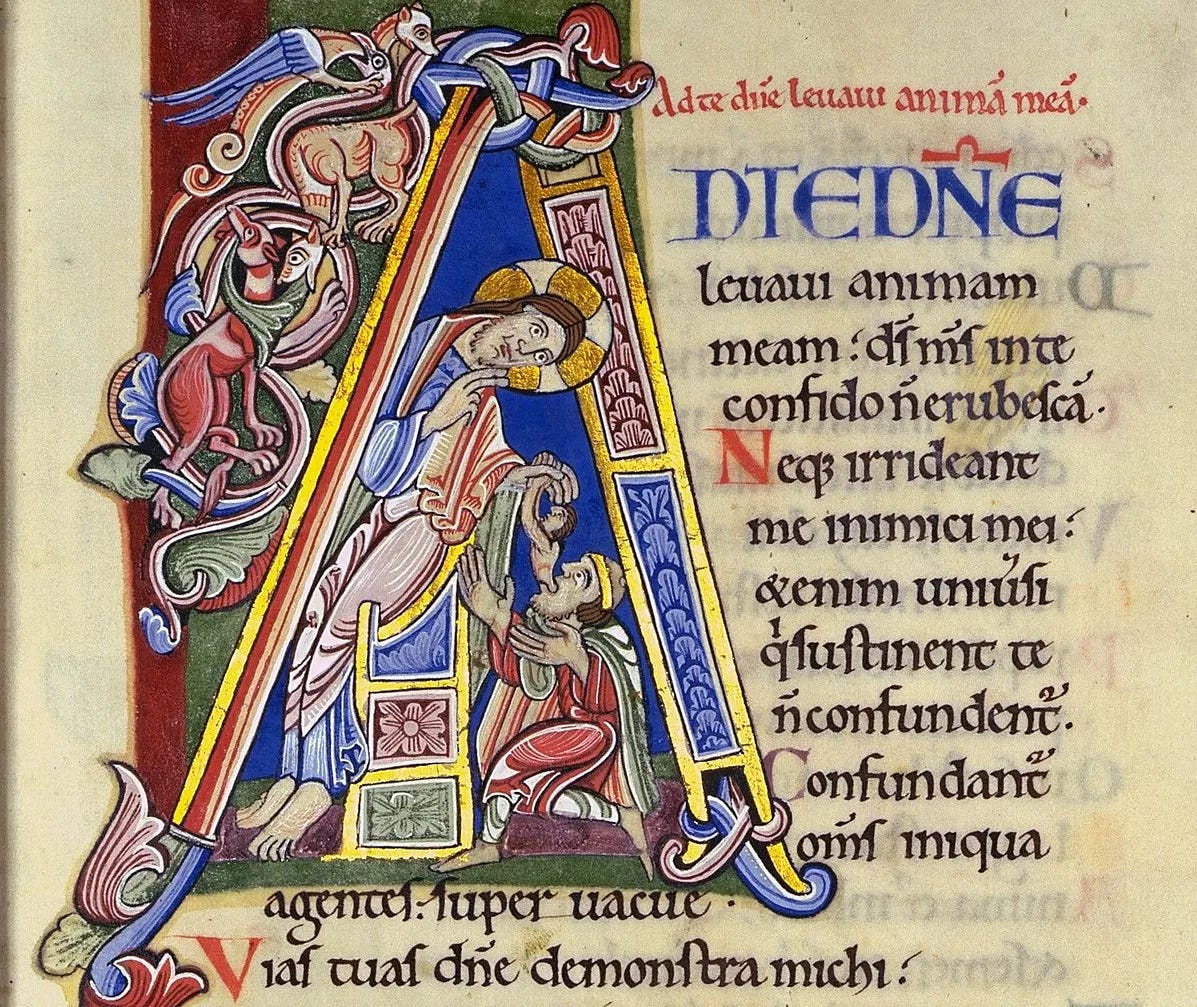 Ad te dn̄e levavi animā meā.
AD TE DN̄E
levavi animam
meam: ds̄ ms̄ in te
confido n̄ erubescā.
Neqꝫ irrideant
me inimici mei:
&enim univ̾si
qͥ sustinent te
n̄ confundent᷑.
Confundant᷑
om̄s iniqua
agentes: super vacue.
Vias tuas dn̄e demonstra michi: